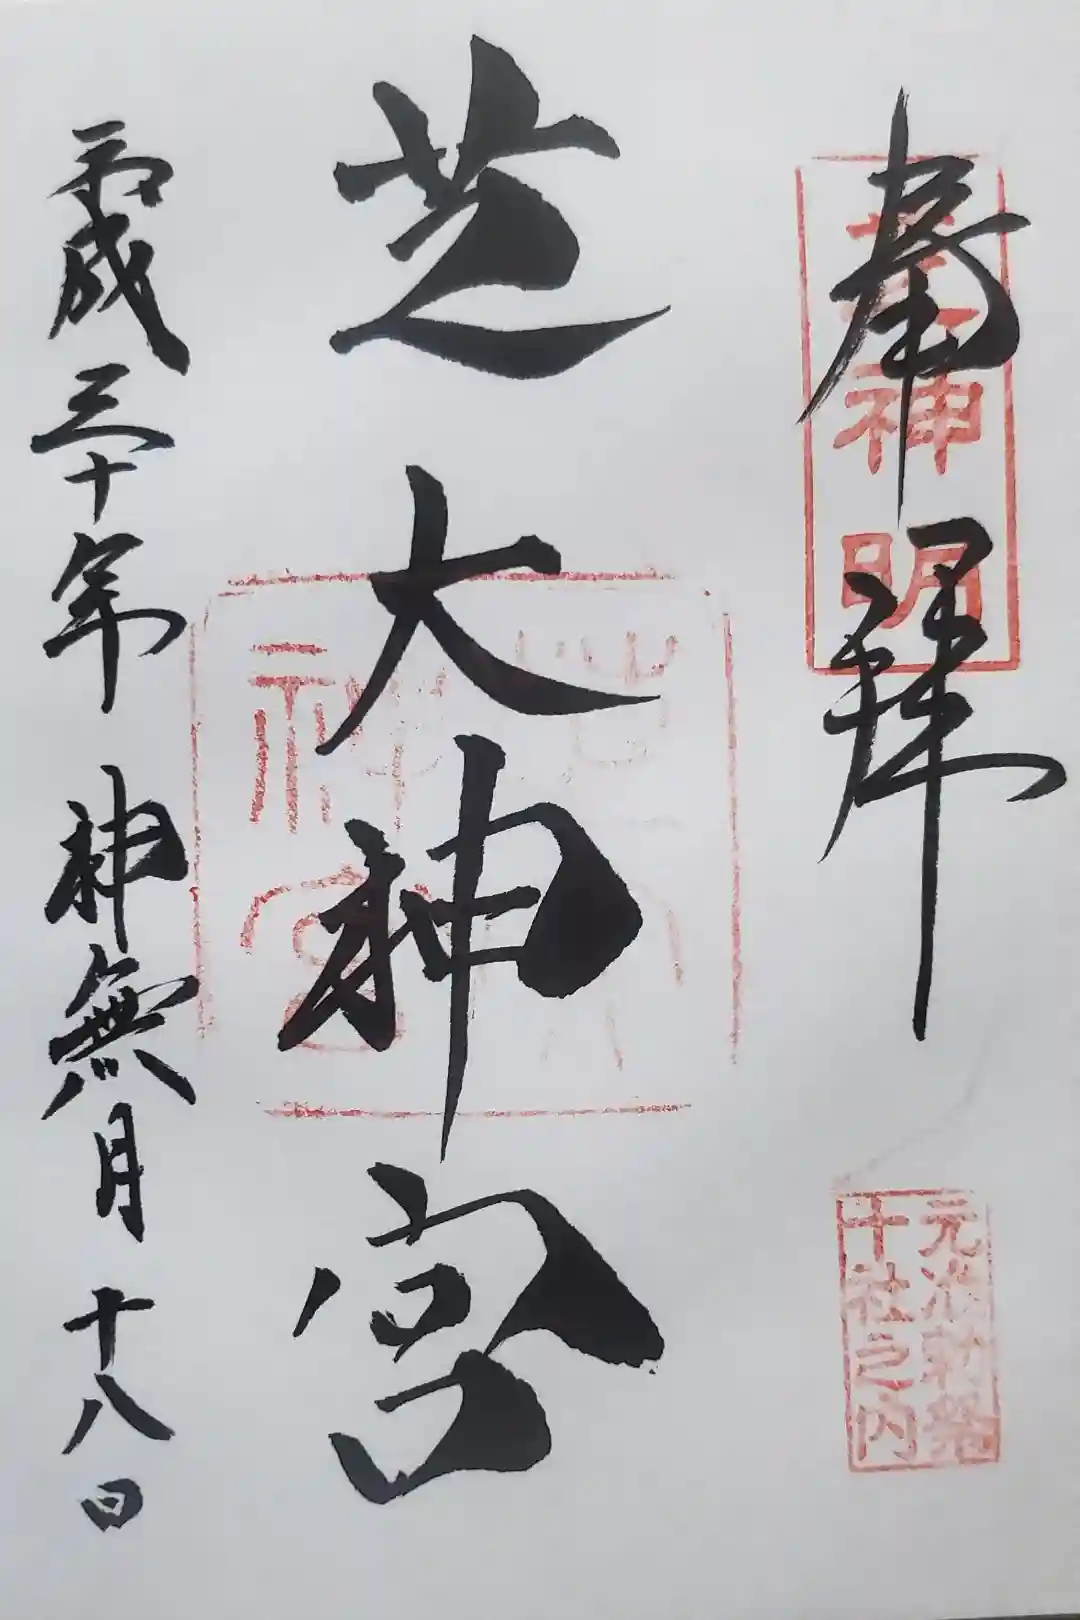 奉拝
芝神明
元准勅祭
十社之内
芝大神宮
芝大神宮
平成三十年 神無月 十八日